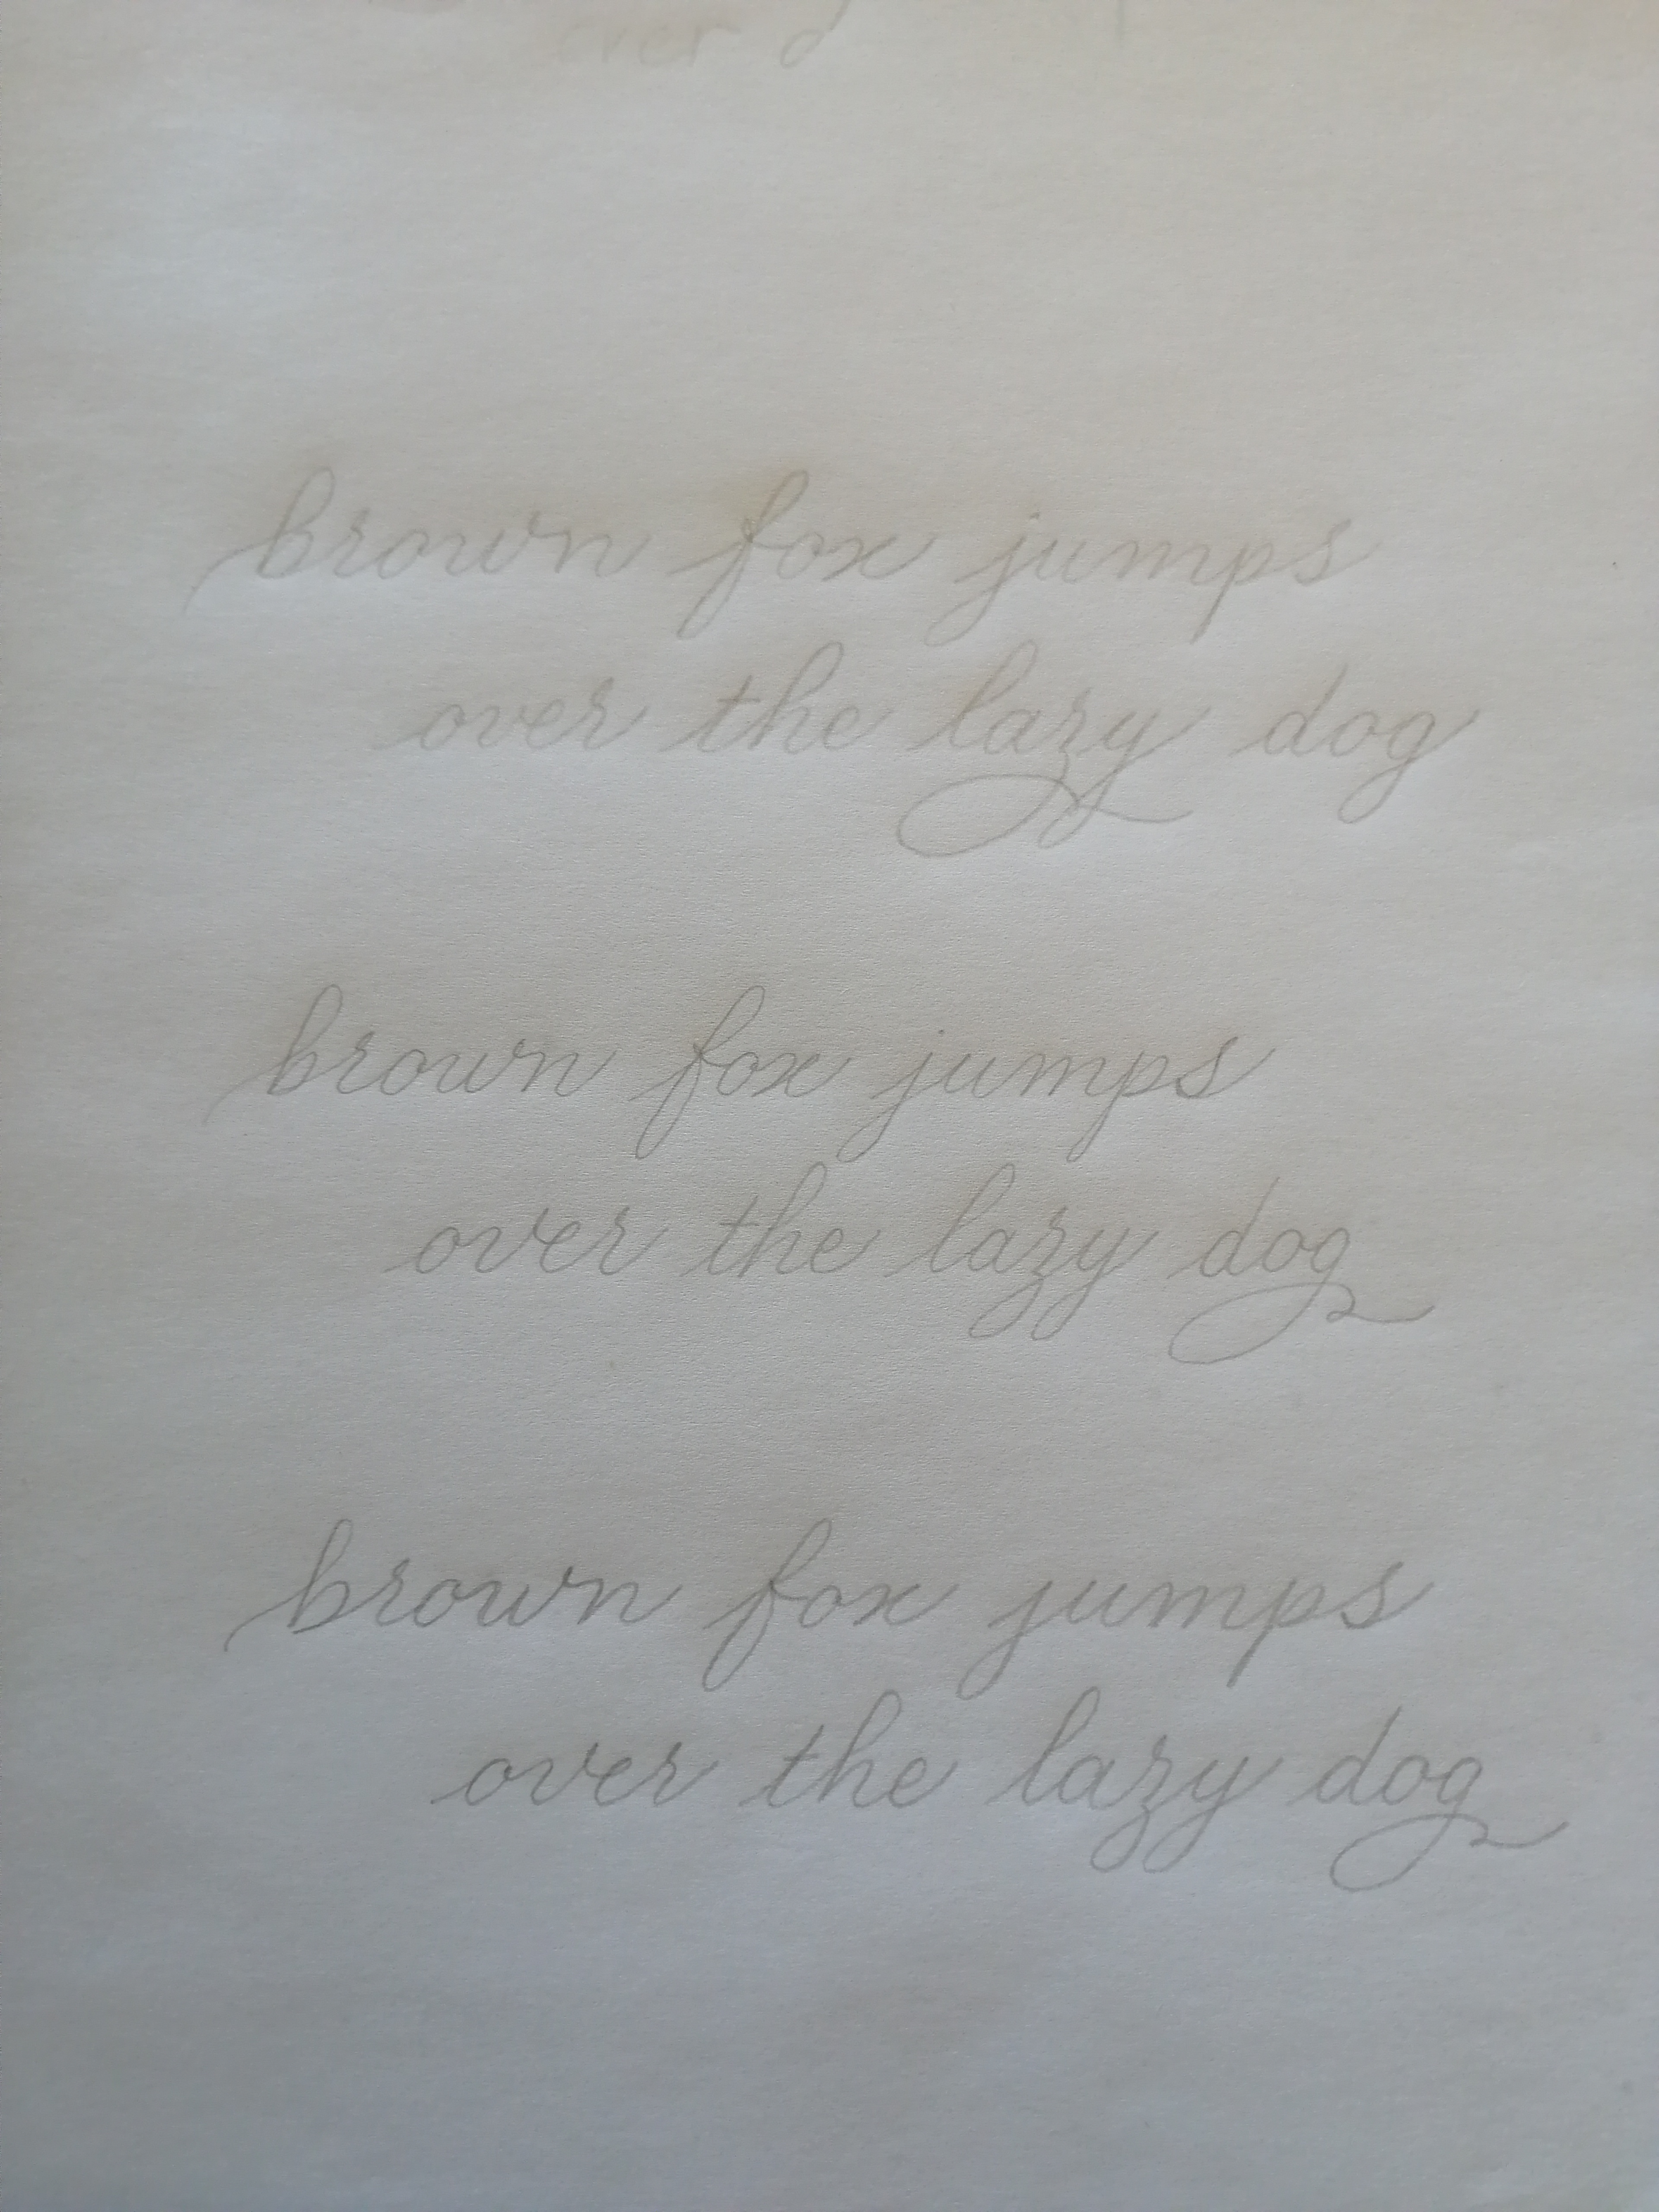 over d
brown fox jumps
over the lazy dog
brown fox jumps
over the lazy dog
brown fox jumps
over the lazy dog